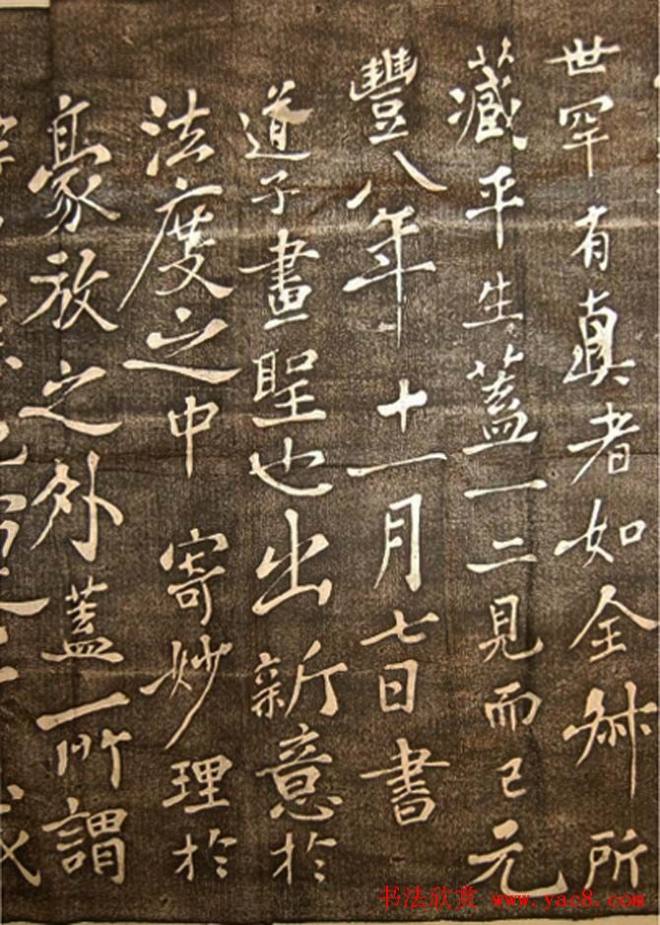 世罕有真者如全叔所
藏平生蓋一二見而已元
豐八年十一月七日書
道子畫聖也出新意於
法度之中寄妙理於
豪放之外蓋一所謂
书法欣赏 www.yac8.com